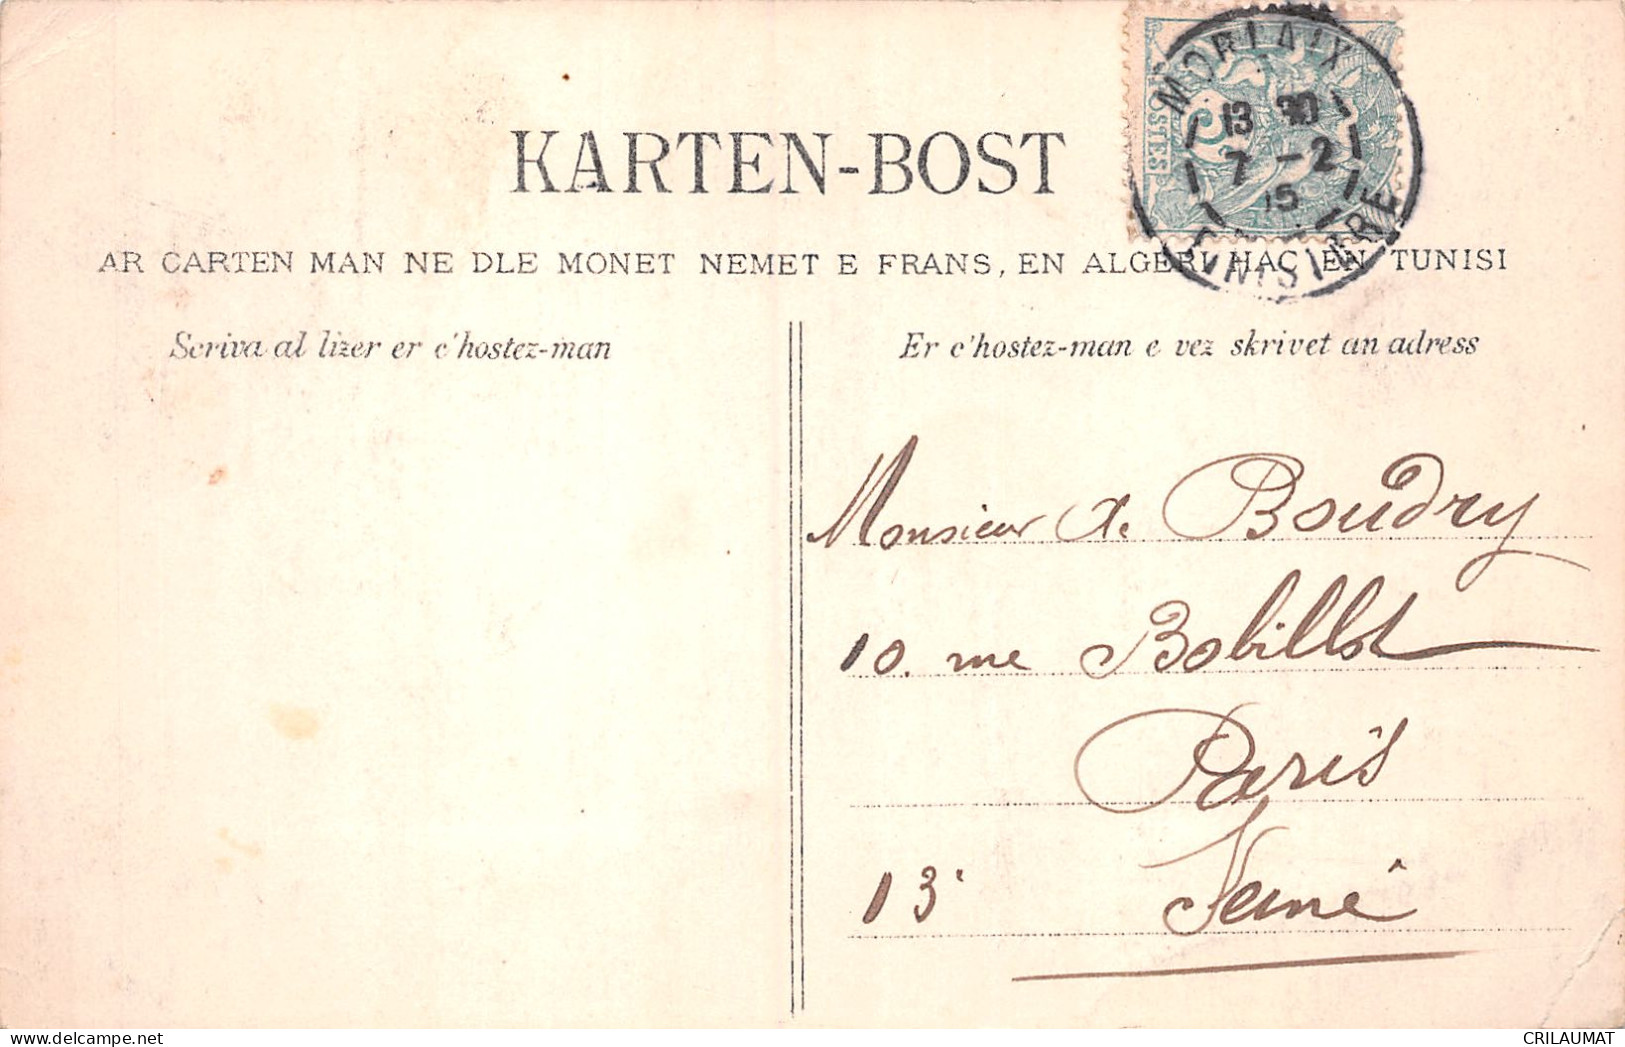 KARTEN-BOST
MORLAIX
13 30
7 -2
15
FINISTERE
POSTES
5
AR CARTEN MAN NE DLE MONET NEMET E FRANS, EN ALGERI HAC EN TUNISI
Scriva al lizer er c'hostez-man
Er c'hostez-man e vez skrivet an adress
Monsieur de Boudry
10. rue Bobillot
Paris
13e Seine
www.delcampe.net
CRILAUMAT